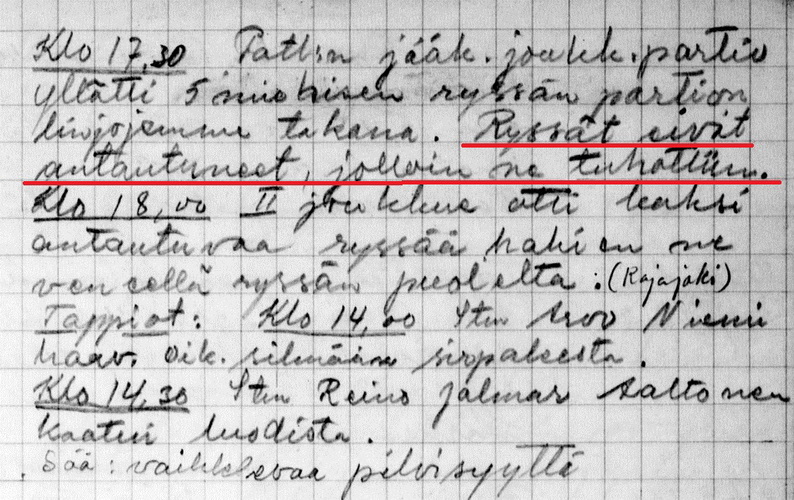 Klo 17,30 Patl:n jääk.joukk.partio
yllätti 5 miehisen ryssän partion
linjojemme takana. Ryssät eivät
antautuneet, jolloin ne tuhottiin.
Klo 18,00 II joukkue otti kaksi
antautuvaa ryssää hakien ne
veneellä ryssän puolelta. (Rajajoki)
Tappiot: Klo 14,00 Stm Arvo Niemi
haav. oik. silmään sirpaleesta.
Klo 14,30 Stm Reino Jalmar Aaltonen
kaatui luodista.
Sää: vaihtelevaa pilvisyyttä